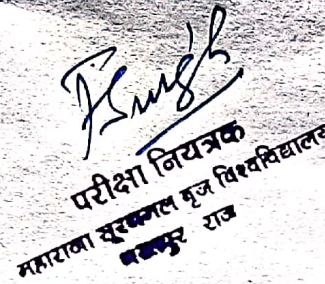 FSingh
परीक्षा नियत्रक
महाराजा सूरजमल बृज विश्वविद्यालय
भरतपुर राज